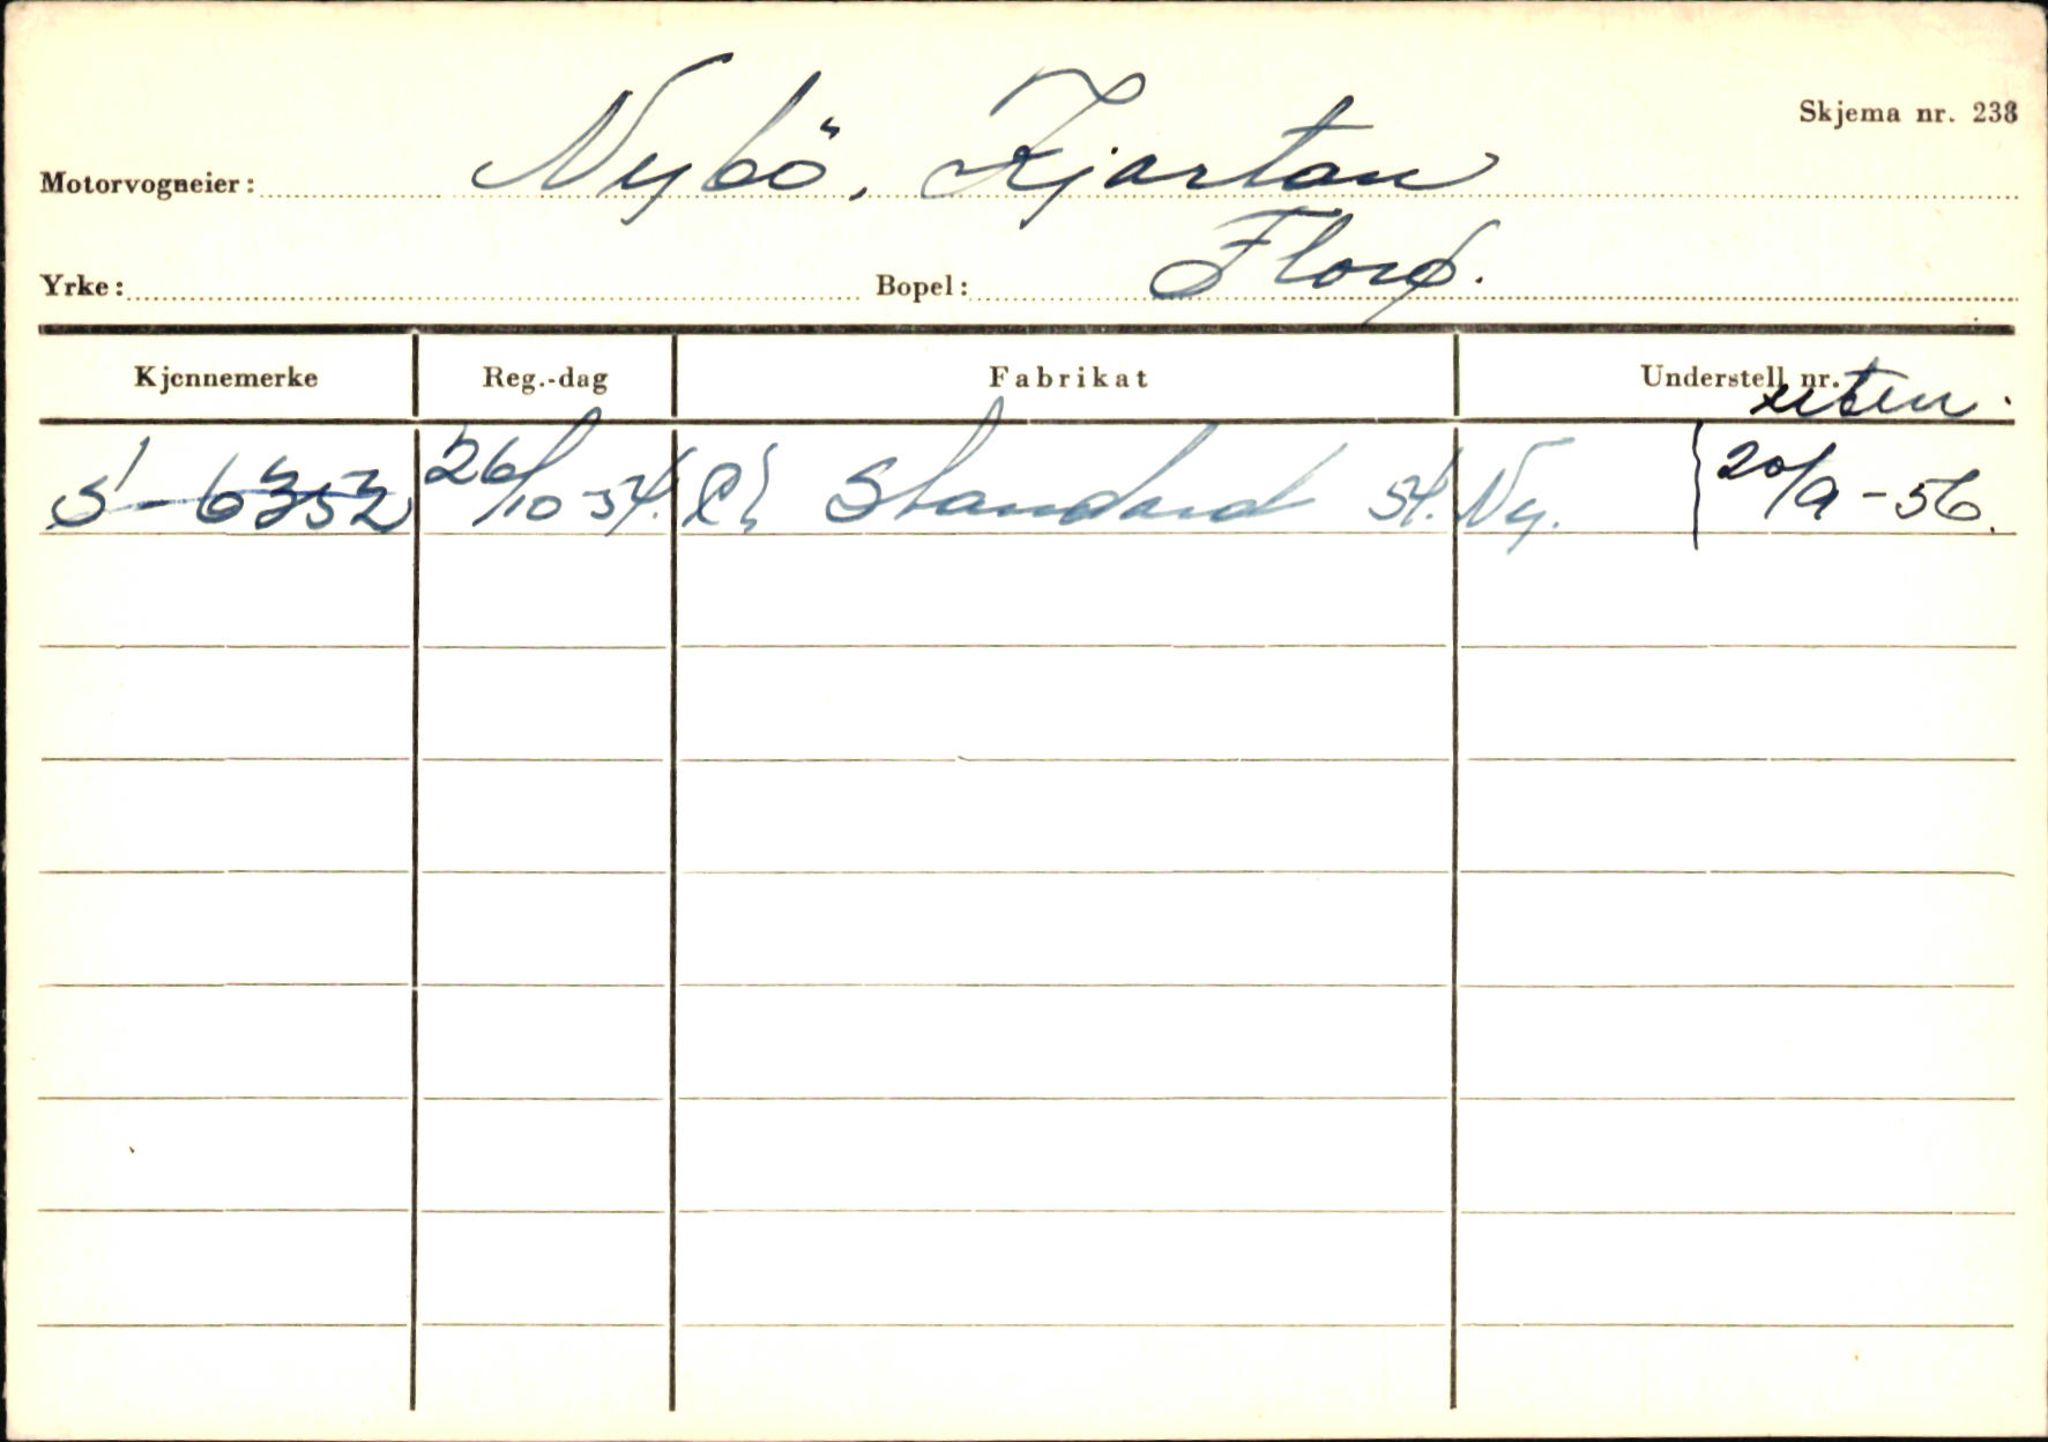 Skjema nr. 238
Motorvogneier: Nybö, Kjartan
Yrke: Bopel: Florø.
Kjennemerke Reg.-dag Fabrikat Understell nr.
uten.
S-6352 26/10-54. Standard 54. Ny. 20/9-56.